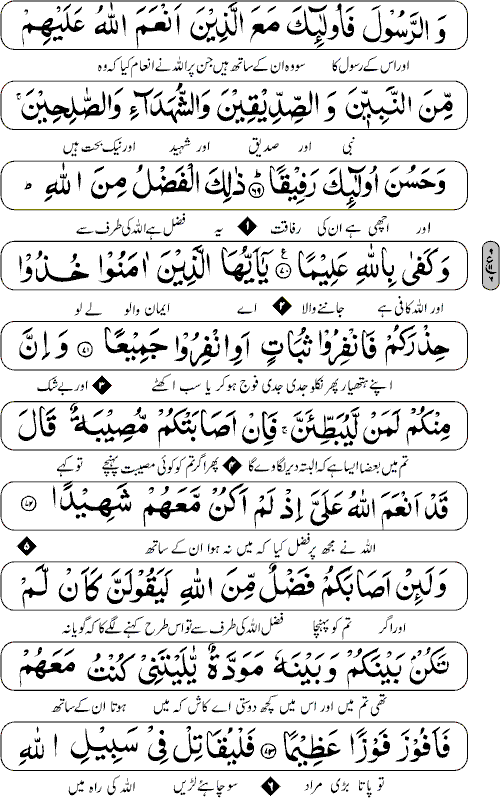 وَالرَّسُوْلَ فَاُولٰٓئِكَ مَعَ الَّذِيْنَ اَنْعَمَ اللّٰهُ عَلَيْهِمْ
اور اس کے رسول کا سو وہ ان کے ساتھ ہیں جن پر اللہ نے انعام کیا کہ وہ
مِّنَ النَّبِيّٖنَ وَالصِّدِّيْقِيْنَ وَالشُّهَدَآءِ وَالصّٰلِحِيْنَ ۚ
نبی اور صدیق اور شہید اور نیک بخت ہیں
وَحَسُنَ اُولٰٓئِكَ رَفِيْقًا ؕ ﴿۶۹﴾ ذٰلِكَ الْفَضْلُ مِنَ اللّٰهِ ؕ
اور اچھی ہے ان کی رفاقت ۱ یہ فضل ہے اللہ کی طرف سے
وَكَفٰى بِاللّٰهِ عَلِيْمًا ﴿۷۰﴾ ع يٰۤاَيُّهَا الَّذِيْنَ اٰمَنُوْا خُذُوْا
اور اللہ کافی ہے جاننے والا ۲ اے ایمان والو لے لو
حِذْرَكُمْ فَانْفِرُوْا ثُبَاتٍ اَوِ انْفِرُوْا جَمِيْعًا ﴿۷۱﴾ وَاِنَّ
اپنے ہتھیار پھر نکلو جدی جدی فوج ہو کر یا سب اکٹھے ۳ اور بے شک
مِنْكُمْ لَمَنْ لَّيُبَطِّئَنَّ ۚ فَاِنْ اَصَابَتْكُمْ مُّصِيْبَةٌ قَالَ
تم میں بعضا ایسا ہے کہ البتہ دیر لگاوے گا ۴ پھر اگر تم کو کوئی مصیبت پہنچے تو کہے
قَدْ اَنْعَمَ اللّٰهُ عَلَيَّ اِذْ لَمْ اَكُنْ مَّعَهُمْ شَهِيْدًا ﴿۷۲﴾
اللہ نے مجھ پر فضل کیا کہ میں نہ ہوا ان کے ساتھ ۵
وَلَئِنْ اَصَابَكُمْ فَضْلٌ مِّنَ اللّٰهِ لَيَقُوْلَنَّ كَاَنْ لَّمْ
اور اگر تم کو پہنچا فضل اللہ کی طرف سے تو اس طرح کہنے لگے گا کہ گویا نہ
تَكُنْۢ بَيْنَكُمْ وَبَيْنَهٗ مَوَدَّةٌ يّٰلَيْتَنِيْ كُنْتُ مَعَهُمْ
تھی تم میں اور اس میں کچھ دوستی اے کاش کہ میں ہوتا ان کے ساتھ
فَاَفُوْزَ فَوْزًا عَظِيْمًا ﴿۷۳﴾ فَلْيُقَاتِلْ فِيْ سَبِيْلِ اللّٰهِ
تو پاتا بڑی مراد ۶ سو چاہئے لڑیں اللہ کی راہ میں